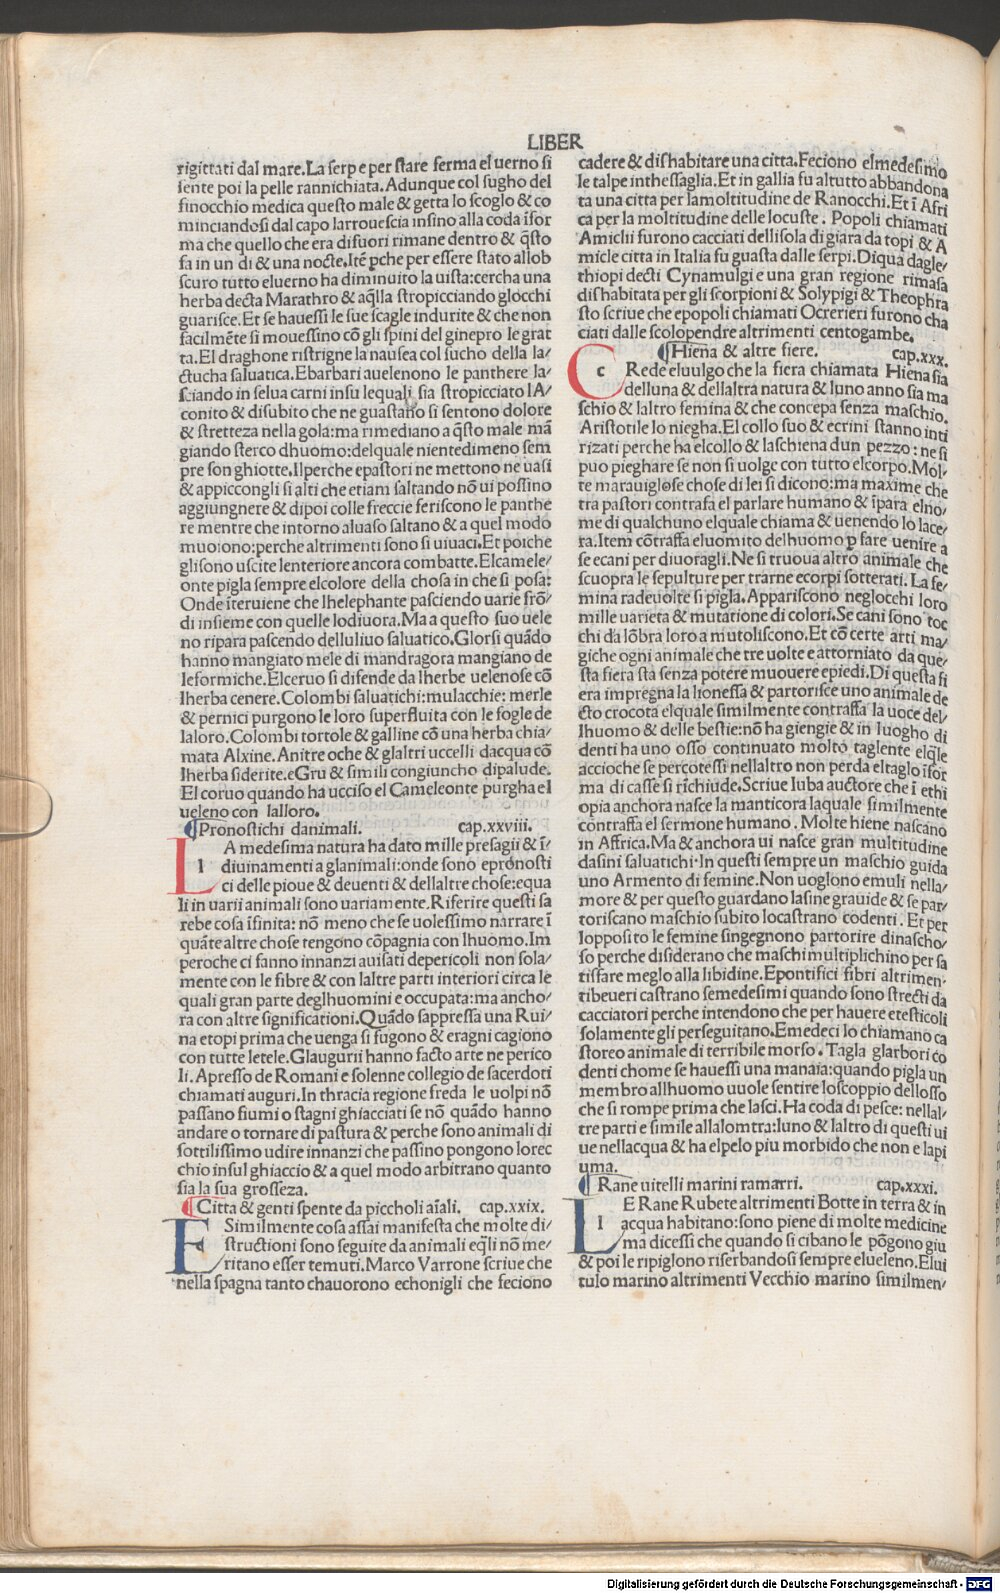 LIBER
rigittati dal mare.La serp e per stare ferma el uerno si
sente poi la pelle rannichiata.Adunque col sugho del
finocchio medica questo male & getta lo scoglo & co
minciandosi dal capo larrouescia insino alla coda ĩfor
ma che quello che era difuori rimane dentro & q̃sto
fa in un di & una nocte.Itẽ ꝑche per essere stato allob
scuro tutto eluerno ha diminuito la uista:cercha una
herba decta Marathro & aq̃lla stropicciando glocchi
guarisce.Et se hauessi le sue scagle indurite & che non
facilmẽte si mouessino cõ gli spini del ginepro le grat
ta.El draghone ristrigne la nausea col sucho della la/
ctucha saluatica.Ebarbari auelenono le panthere la/
sciando in selua carni insu lequali sia stropicciato lA/
conito & disubito che ne guastano si sentono dolore
& stretteza nella gola:ma rimediano a q̃sto male mã
giando sterco dhuomo:delquale nientedimeno sem
pre son ghiotte.Ilperche epastori ne mettono ne uasi
& appiccongli si alti che etiam saltando nõ ui possino
aggiungnere & dipoi colle freccie feriscono le panthe
re mentre che intorno aluaso saltano & a quel modo
muoiono:perche altrimenti sono si uiuaci.Et poiche
glisono uscite lenteriore ancora combatte.Elcamele/
onte pigla sempre elcolore della chosa in che si posa:
Onde ĩteruiene che lhelephante pasciendo uarie frõ/
di insieme con quelle lodiuora.Ma a questo suo uele
no ripara pascendo delluliuo saluatico.Glorsi quãdo
hanno mangiato mele di mandragora mangiano de
leformiche.Elceruo si difende da lherbe uelenose cõ
lherba cenere.Colombi saluatichi:mulacchie: merle
& pernici purgono le loro superfluita con le fogle de
laloro.Colombi tortole & galline cõ una herba chia/
mata Alxine.Anitre oche & glaltri uccelli dacqua cõ
lherba siderite.eGru & simili congiuncho dipalude.
El coruo quando ha ucciso el Cameleonte purgha el
ueleno con lalloro.
Pronostichi danimali. cap.xxviii.
L A medesima natura ha dato mille presagii & ĩ/
l diuinamenti a glanimali:onde sono epronosti
ci delle pioue & deuenti & dellaltre chose:equa
li in uarii animali sono uariamente.Riferire questi sa
rebe cosa ĩfinita: nõ meno che se uolessimo narrare ĩ
quãte altre chose tengono cõpagnia con lhuomo.Im
peroche ci fanno innanzi auisati depericoli non sola/
mente con le fibre & con laltre parti interiori circa le
quali gran parte deglhuomini e occupata:ma ancho/
ra con altre significationi.Quãdo sappressa una Rui/
na etopi prima che uenga si fugono & eragni cagiono
con tutte letele.Glaugurii hanno facto arte ne perico
li.Apresso de Romani e solenne collegio de sacerdoti
chiamati auguri.In thracia regione freda le uolpi nõ
passano fiumi o stagni ghiacciati se nõ quãdo hanno
andare o tornare di pastura & perche sono animali di
sottilissimo udire innanzi che passino pongono lorec
chio insul ghiaccio & a quel modo arbitrano quanto
sia la sua grosseza.
Citta & genti spente da piccholi aĩali. cap.xxix.
E Similmente cosa assai manifesta che molte di/
e structioni sono seguite da animali eq̃li nõ me/
ritano esser temuti.Marco Varrone scriue che
nella spagna tanto chauorono echonigli che feciono
cadere & dishabitare una citta.Feciono elmedesimo
le talpe inthessaglia.Et in gallia fu altutto abbandona
ta una citta per lamoltitudine de Ranocchi.Et ĩ Afri
ca per la moltitudine delle locuste. Popoli chiamati
Amichii furono cacciati dellisola di giara da topi & A
micle citta in Italia fu guasta dalle serpi.Diqua dagle/
thiopi decti Cynamulgi e una gran regione rimasa
dishabitata per gli scorpioni & Solypigi & Theophra
sto scriue che epopoli chiamati Ocrerieri furono cha
ciati dalle scolopendre altrimenti centogambe.
Hiena & altre fiere. cap.xxx.
C c Rede eluulgo che la fiera chiamata Hiena sia
delluna & dellaltra natura & luno anno sia ma
schio & laltro femina & che concepa senza maschio.
Aristotile lo niegha.El collo suo & ecrini stanno inti
rizati perche ha elcollo & laschiena dun pezzo: ne si
puo pieghare se non si uolge con tutto elcorpo.Mol/
te marauiglose chose di lei si dicono:ma maxime che
tra pastori contrafa el parlare humano & ĩpara elno/
me di qualchuno elquale chiama & uenendo lo lace/
ra.Item cõtraffa eluomito delhuomo ꝑ fare uenire a
se ecani per diuoragli.Ne si truoua altro animale che
scuopra le sepulture per trarne ecorpi sotterati. La fe/
mina radeuolte si pigla.Appariscono neglocchi loro
mille uarieta & mutatione di colori.Se cani sono toc
chi da lõbra loro a mutoliscono.Et cõ certe arti ma/
giche ogni animale che tre uolte e attorniato da que/
sta fiera sta senza potere muouere epiedi.Di questa fi
era impregna la lionessa & partorisce uno animale de
cto crocota elquale similmente contraffa la uoce del/
lhuomo & delle bestie:nõ ha giengie & in luogho di
denti ha uno osso continuato molto taglente elq̃le
accioche se percotessi nellaltro non perda eltaglo ĩfor
ma di casse si richiude.Scriue Iuba auctore che ĩ ethi
opia anchora nasce la manticora laquale similmente
cõntraffa el sermone humano. Molte hiene nascano
in Affrica.Ma & anchora ui nasce gran multitudine
dasini saluatichi.In questi sempre un maschio guida
uno Armento di femine.Non uoglono emuli nella/
more & per questo guardano lasine grauide & se par/
toriscano maschio subito locastrano codenti. Et per
lopposito le femine singegnono partorire dinascho/
so perche disiderano che maschi multiplichino per sa
tisfare meglo alla libidine.Epontifici fibri altrimen/
tibeueri castrano semedesimi quando sono strecti da
cacciatori perche intendono che per hauere etesticoli
solamente gli perseguitano.Emedeci lo chiamano ca
storeo animale di terribile morso. Tagla glarbori co
denti chome se hauessi una manaia:quando pigla un
membro allhuomo uuole sentire loscoppio dellosso
che si rompe prima che lasci.Ha coda di pesce: nellal/
tre parti e simile allalomtra:luno & laltro di questi ui
ue nellacqua & ha elpelo piu morbido che non e lapi
uma.
Rane uitelli marini ramarri. cap.xxxi.
L E Rane Rubete altrimenti Botte in terra & in
l acqua habitano:sono piene di molte medicine
ma dicessi che quando si cibano le põgono giu
& poi le ripiglono riserbandosi sempre elueleno.Elui
tulo marino altrimenti Vecchio marino similmen/
Digitalisierung gefördert durch die Deutsche Forschungsgemeinschaft - DFG